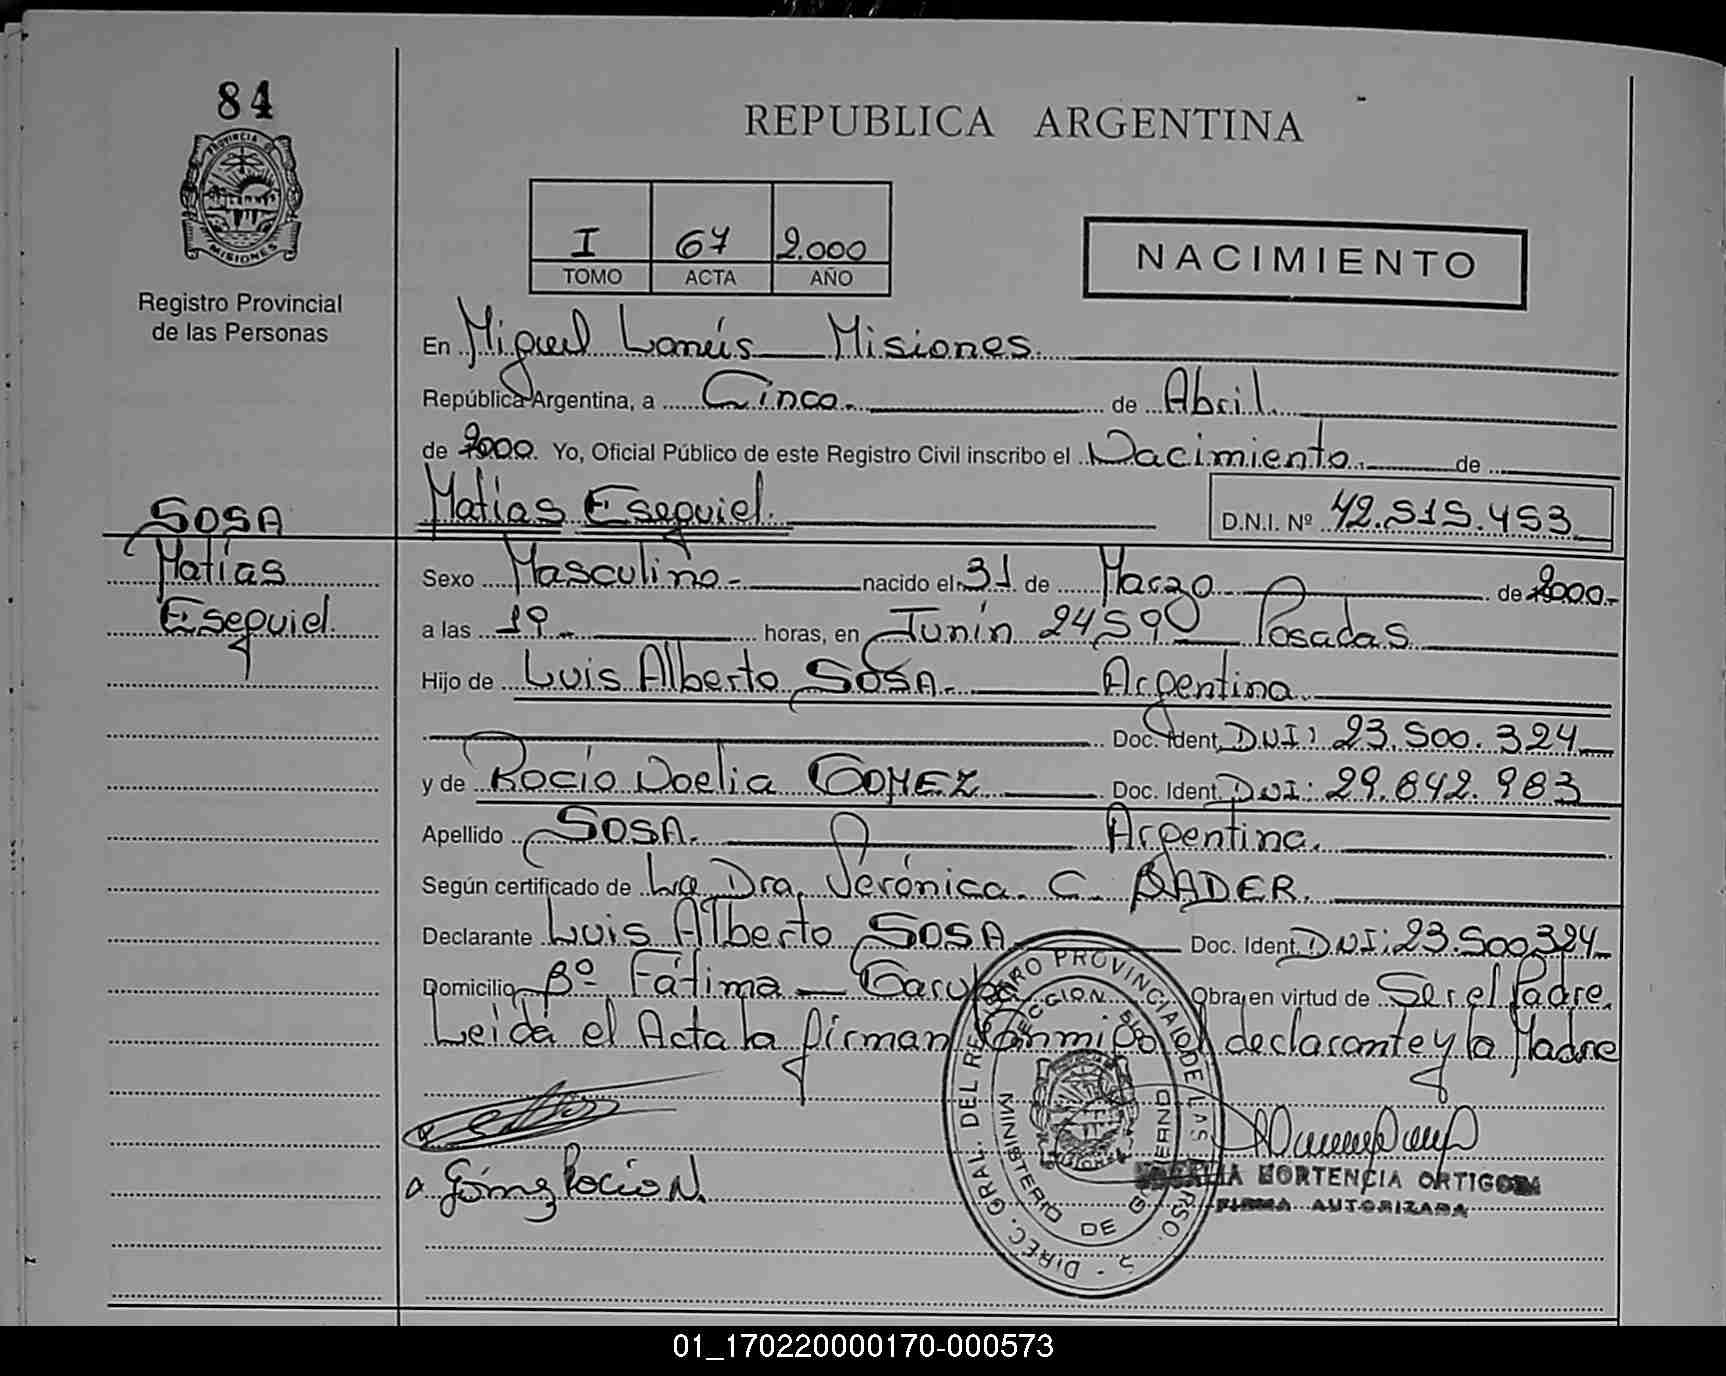 84
PROVINCIA DE
MISIONES
Registro Provincial
de las Personas
REPUBLICA ARGENTINA
I 67 2.000
TOMO ACTA AÑO
NACIMIENTO
En Miguel Lanús Misiones
República Argentina, a Cinco de Abril
de 2000. Yo, Oficial Público de este Registro Civil inscribo el Nacimiento de
SOSA
Matías
Esequiel.
Matías Esequiel. D.N.I. Nº 42.515.453
Sexo Masculino nacido el 31 de Marzo de 2000.
a las 19 horas, en Junín 2459 Posadas
Hijo de Luis Alberto SOSA. Argentina
Doc. Ident. DNI: 23.500.324
y de Rocío Noelia GOMEZ Doc. Ident. DNI: 29.842.983
Apellido SOSA. Argentina.
Según certificado de La Dra. Verónica C. BADER.
Declarante Luis Alberto SOSA Doc. Ident. DNI: 23.500324
Domicilio Bº Fátima Garupá Obra en virtud de Ser el Padre.
Leida el Acta la firman Conmigo el declarante y la Madre
Gómez Rocio N.
DIREC. GRAL. DEL REGISTRO PROVINCIAL DE LAS
MINISTERIO DE GOBIERNO
HORTENCIA ORTIGOZA
FIRMA AUTORIZADA
01_170220000170-000573